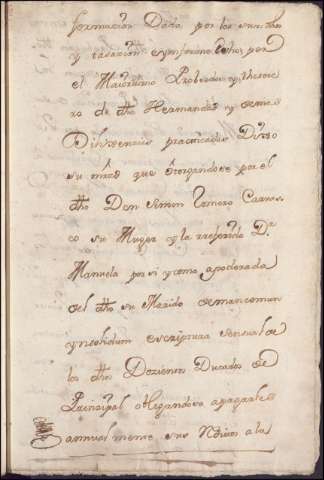 formacion Dada por los
y tasacion e ynforme echos por
el Maiordomo Presvitero y thesore
ro de dha Hermandad y demas
Dilixencias practicadas Dixo
su mrd que otorgandose por el
dho Don Simon Romero Carras
co su Muger y la rreferida Da
Manuela por si y como apoderada
del dho su Marido de mancomun
y nsolidum escriptura sensual de
los dhos Dozientos Ducados de
Principal obligandose a pagarles
annualmente sus Reditos a la